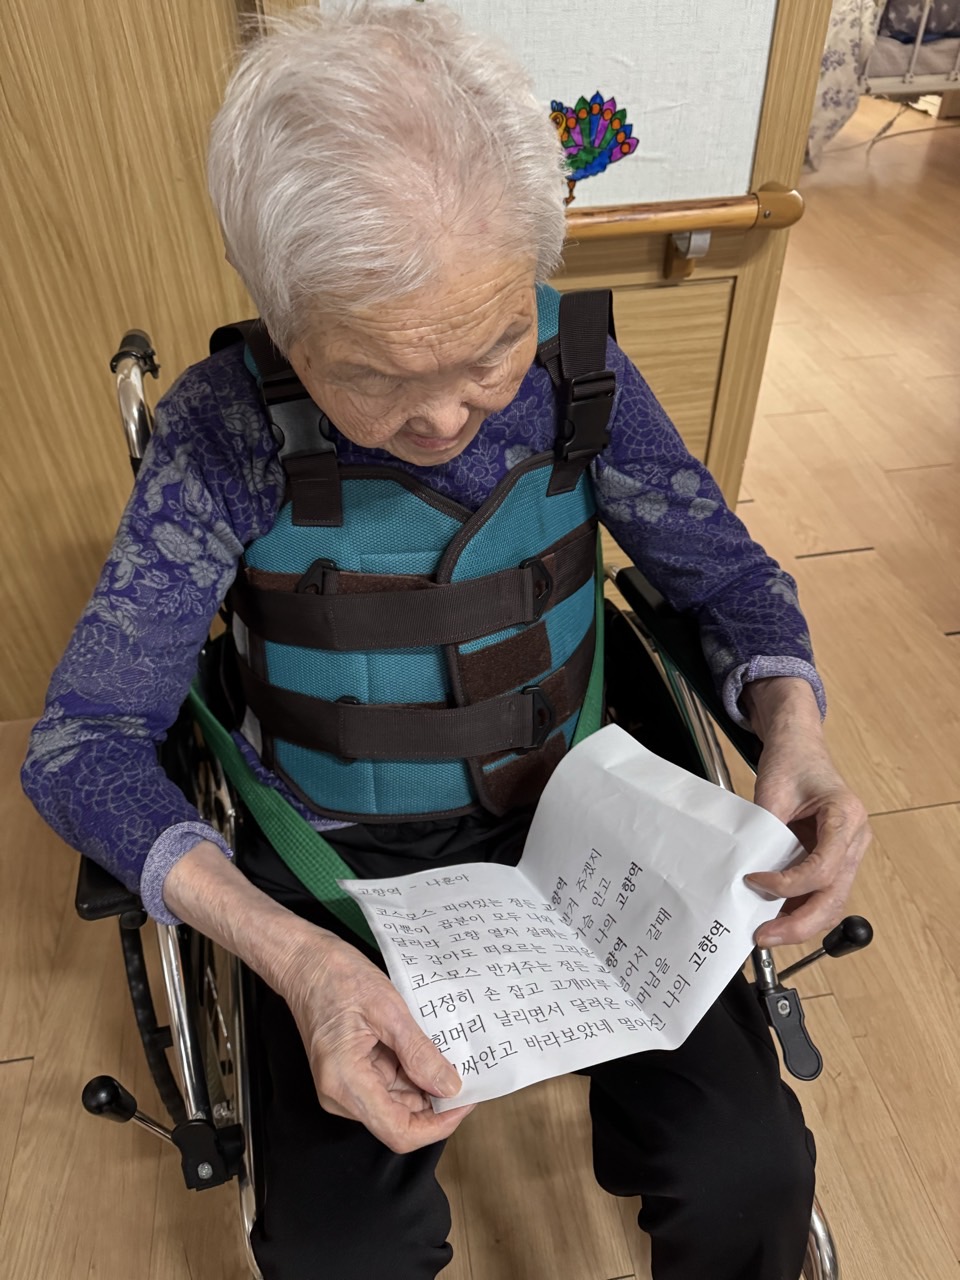 고향역 - 나훈아
코스모스 피어있는 정든 고향역
이뿐이 곱분이 모두 나와 반겨 주겠지
달려라 고향 열차 설레는 가슴 안고
눈 감아도 떠오르는 그리운 나의 고향역
코스모스 반겨주는 정든 고향역
다정히 손 잡고 고개마루 넘어서 갈때
흰머리 날리면서 달려온 어머님을
싸안고 바라보았네 멀어진 나의 고향역